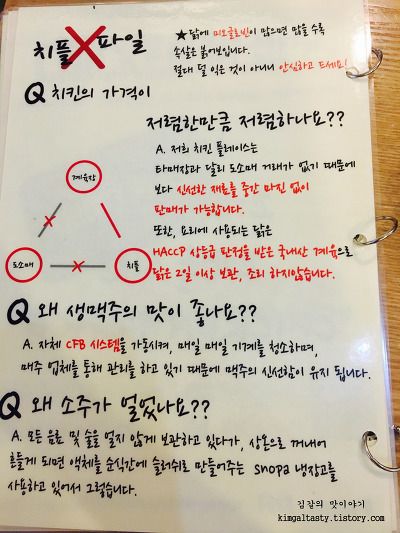 치플X파일
★닭에 미오글로빈이 많으면 많을 수록
속살은 붉어보입니다.
절대 덜 익은 것이 아니니 안심하고 드세요!
Q 치킨의 가격이
저렴한만큼 저렴하나요??
A. 저희 치킨 플레이스는
타매장과 달리 도소매 거래가 없기 때문에
보다 신선한 재료를 중간 마진 없이
판매가 가능합니다.
또한, 요리에 사용되는 닭은
HACCP 상등급 판정을 받은 국내산 계육으로
닭은 2일 이상 보관, 조리 하지않습니다.
계육장
도소매
치플
Q 왜 생맥주의 맛이 좋나요??
A. 자체 CFB 시스템을 가동시켜, 매일 매일 기계를 청소하며,
맥주 업체를 통해 관리를 하고 있기 때문에 맥주의 신선함이 유지 됩니다.
Q 왜 소주가 얼었나요??
A. 모든 음료 및 술을 얼지 않게 보관하고 있다가, 상온으로 꺼내어
흔들게 되면 액체를 순식간에 슬러쉬로 만들어주는 snopa 냉장고를
사용하고 있어서 그렇습니다.
김갈의 맛이야기
kimgaltasty.tistory.com